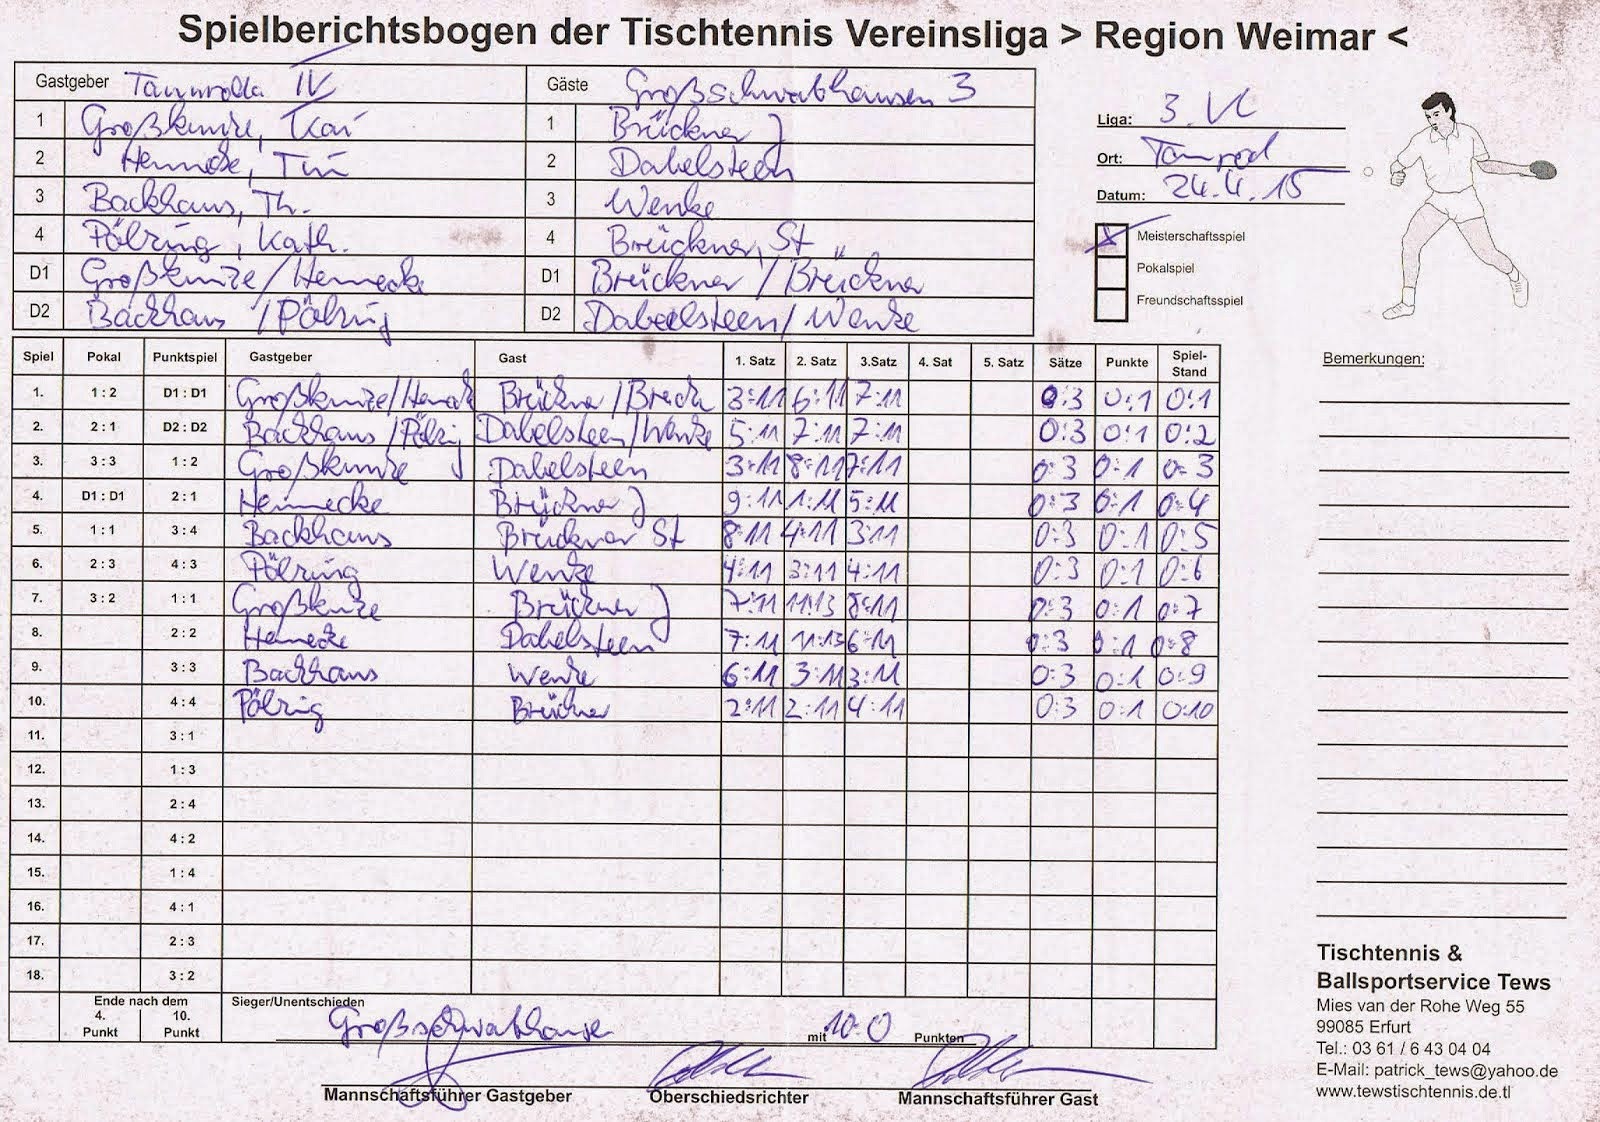 Spielberichtsbogen der Tischtennis Vereinsliga > Region Weimar <
Gastgeber Tannroda IV Gäste Großschwabhausen 3
1 Großkunze, Kai 1 Brückner J
2 Hennecke, Tim 2 Dabelsteen
3 Backhaus, Th. 3 Wenke
4 Pölzing, Kath. 4 Brückner, St
D1 Großkunze/Hennecke D1 Brückner / Brückner
D2 Backhaus / Pölzig D2 Dabelsteen / Wenke
Liga: 3. VL
Ort: Tannrod
Datum: 24.4.15
X Meisterschaftsspiel
Pokalspiel
Freundschaftsspiel
Bemerkungen:
Spiel Pokal Punktspiel Gastgeber Gast 1. Satz 2. Satz 3.Satz 4. Sat 5. Satz Sätze Punkte Spiel-Stand
1. 1 : 2 D1 : D1 Großkunze/Henneck Brückner / Brück 3:11 6:11 7:11 0:3 0:1 0:1
2. 2 : 1 D2 : D2 Backhaus / Pölzig Dabelsteen/Wenke 5:11 7:11 7:11 0:3 0:1 0:2
3. 3 : 3 1 : 2 Großkunze Dabelsteen 3:11 8:11 7:11 0:3 0:1 0:3
4. D1 : D1 2 : 1 Hennecke Brückner J 9:11 1:11 5:11 0:3 0:1 0:4
5. 1 : 1 3 : 4 Backhaus Brückner St 8:11 4:11 3:11 0:3 0:1 0:5
6. 2 : 3 4 : 3 Pölzing Wenke 4:11 3:11 4:11 0:3 0:1 0:6
7. 3 : 2 1 : 1 Großkunze Brückner J 7:11 11:13 8:11 0:3 0:1 0:7
8. 2 : 2 Hennecke Dabelsteen 7:11 11:13 6:11 0:3 0:1 0:8
9. 3 : 3 Backhaus Wenke 6:11 3:11 3:11 0:3 0:1 0:9
10. 4 : 4 Pölzig Brückner 2:11 2:11 4:11 0:3 0:1 0:10
11. 3 : 1
12. 1 : 3
13. 2 : 4
14. 4 : 2
15. 1 : 4
16. 4 : 1
17. 2 : 3
18. 3 : 2
Ende nach dem
4. Punkt 10. Punkt
Sieger/Unentschieden Großschwabhausen mit 10:0 Punkten
Mannschaftsführer Gastgeber Oberschiedsrichter Mannschaftsführer Gast
Tischtennis &
Ballsportservice Tews
Mies van der Rohe Weg 55
99085 Erfurt
Tel.: 03 61 / 6 43 04 04
E-Mail: patrick_tews@yahoo.de
www.tewstischtennis.de.tl